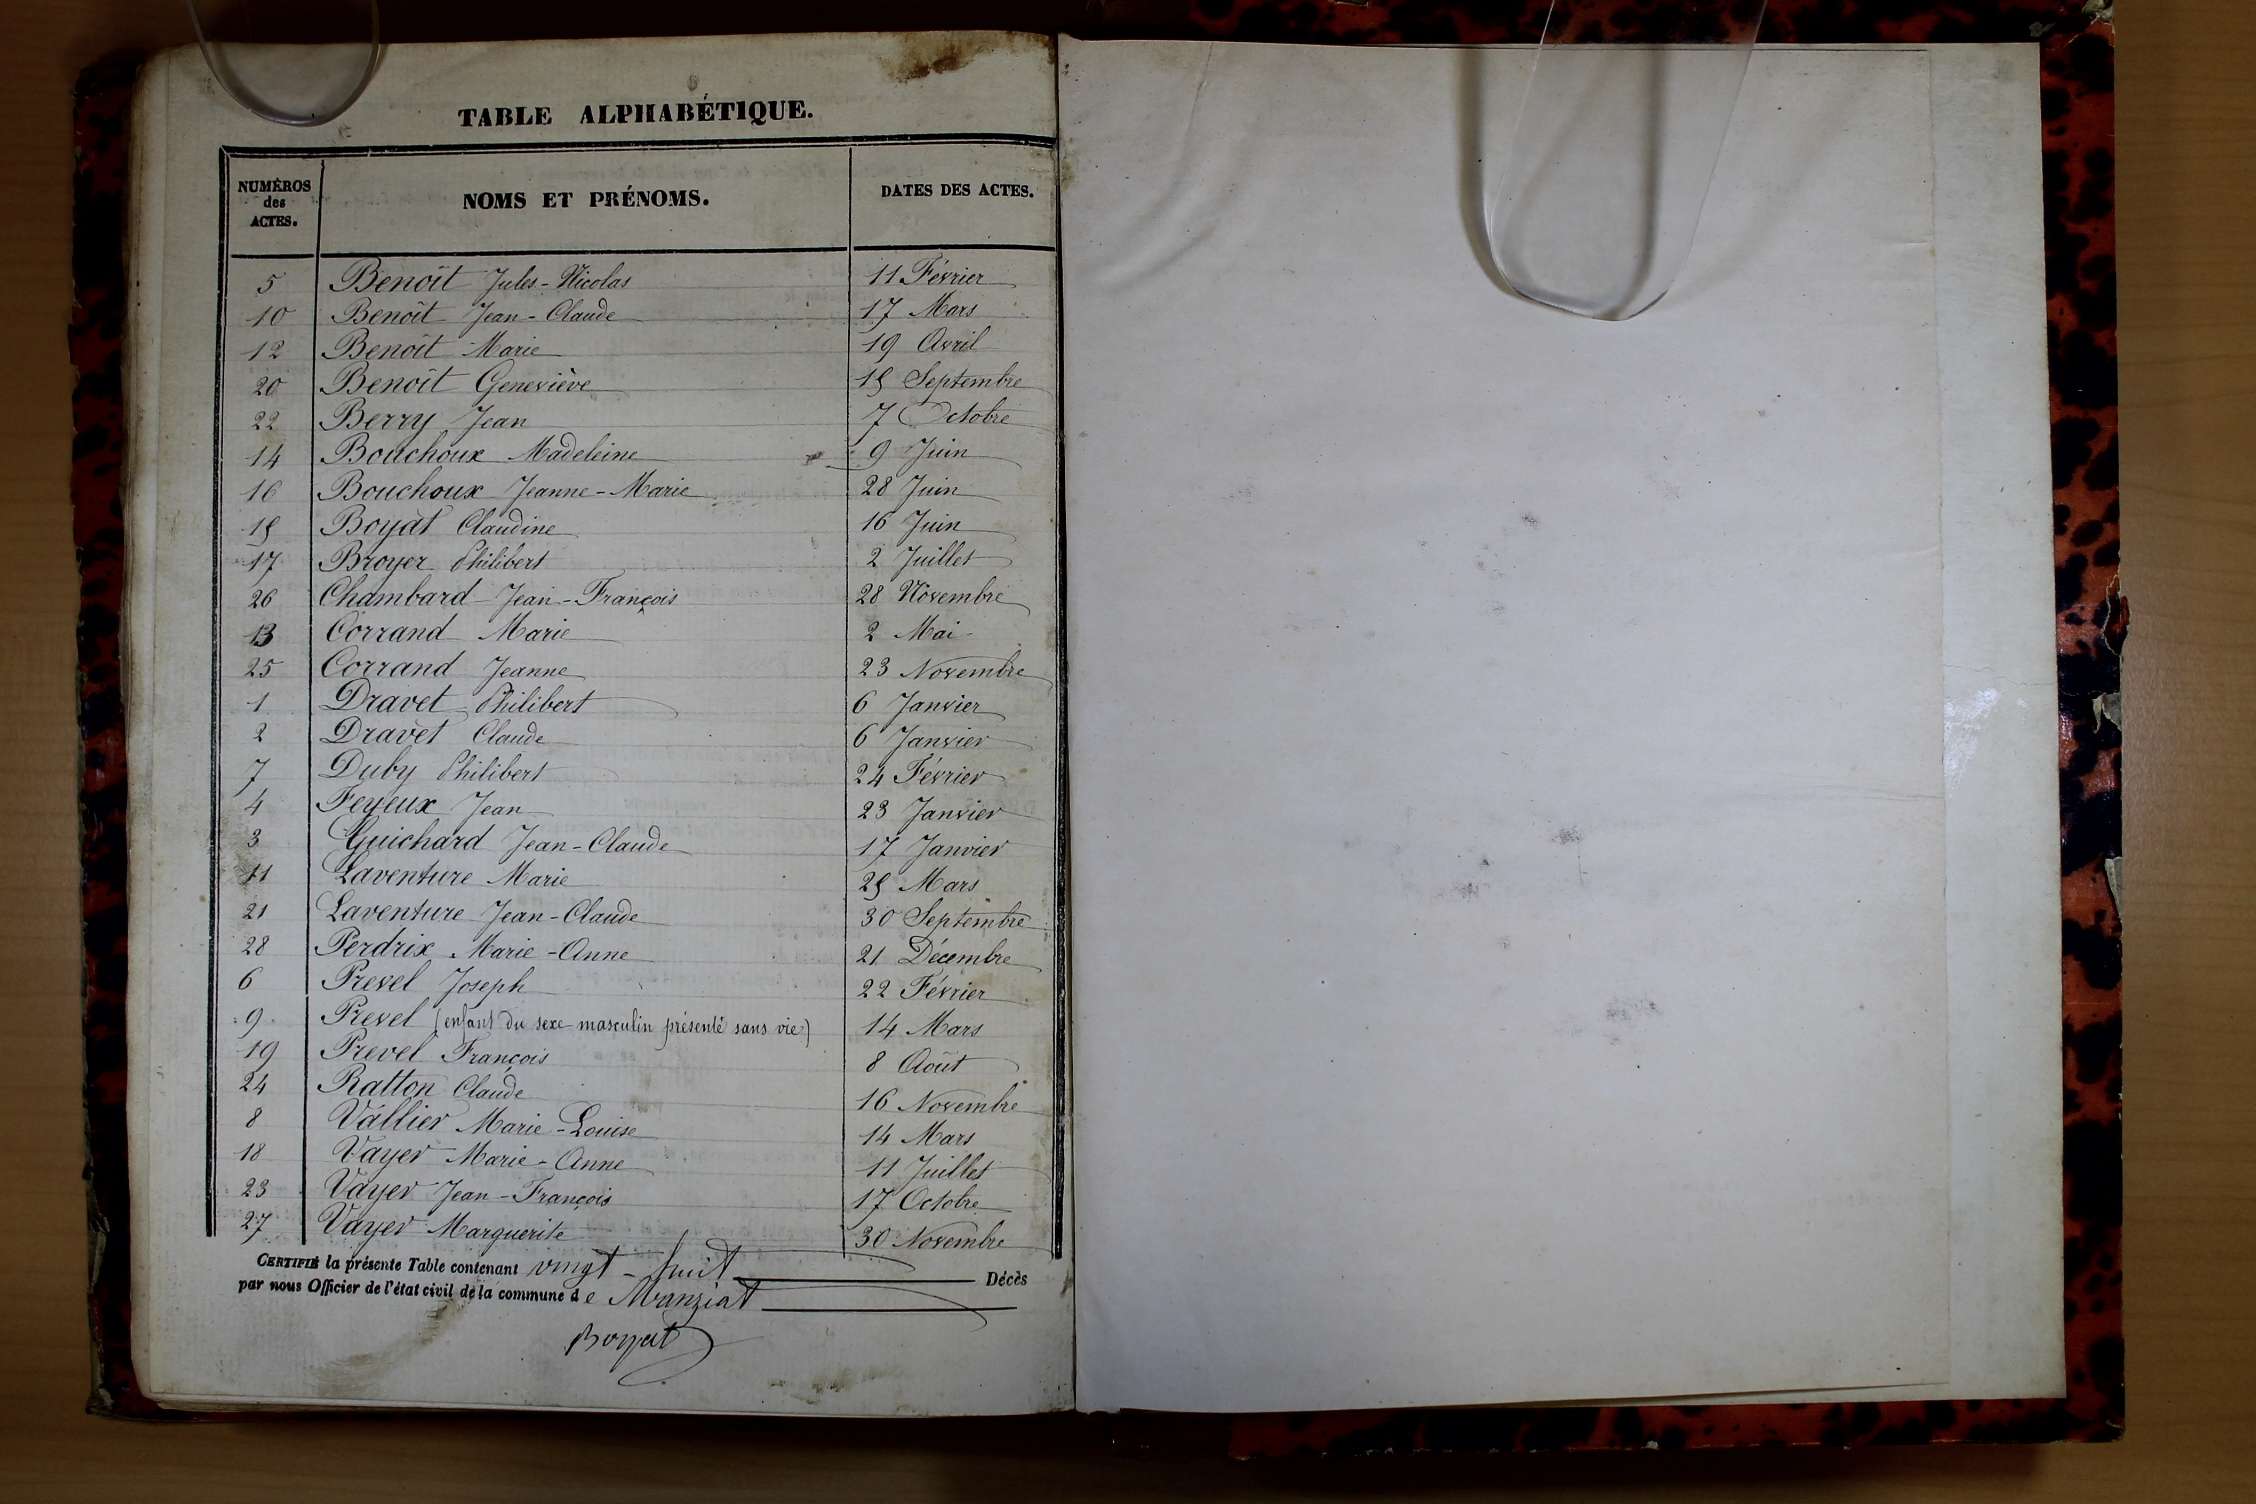 TABLE ALPHABÉTIQUE.
NUMÉROS des ACTES. NOMS ET PRÉNOMS. DATES DES ACTES.
5 Benoît Jules-Nicolas 11 Février
10 Benoît Jean-Claude 17 Mars
12 Benoît Marie 19 Avril
20 Benoît Geneviève 15 Septembre
22 Berry Jean 7 Octobre
14 Bouchoux Madeleine 9 Juin
16 Bouchoux Jeanne-Marie 28 Juin
15 Boyat Claudine 16 Juin
17 Broyer Philibert 2 Juillet
26 Chambard Jean-François 28 Novembre
13 Corrand Marie 2 Mai
25 Corrand Jeanne 23 Novembre
1 Dravet Philibert 6 Janvier
2 Dravet Claude 6 Janvier
7 Duby Philibert 24 Février
4 Feyeux Jean 23 Janvier
3 Guichard Jean-Claude 17 Janvier
11 Laventure Marie 25 Mars
21 Laventure Jean-Claude 30 Septembre
28 Perdrix Marie-Anne 21 Décembre
6 Prevel Joseph 22 Février
9 Prevel (enfant du sexe masculin présenté sans vie) 14 Mars
19 Prevel François 8 Août
24 Ratton Claude 16 Novembre
8 Vallier Marie-Louise 14 Mars
18 Vayer Marie-Anne 11 Juillet
23 Vayer Jean-François 17 Octobre
27 Vayer Marguerite 30 Novembre
CERTIFIÉ la présente Table contenant vingt-huit Décès
par nous Officier de l'état civil de la commune de Manziat
Boyat